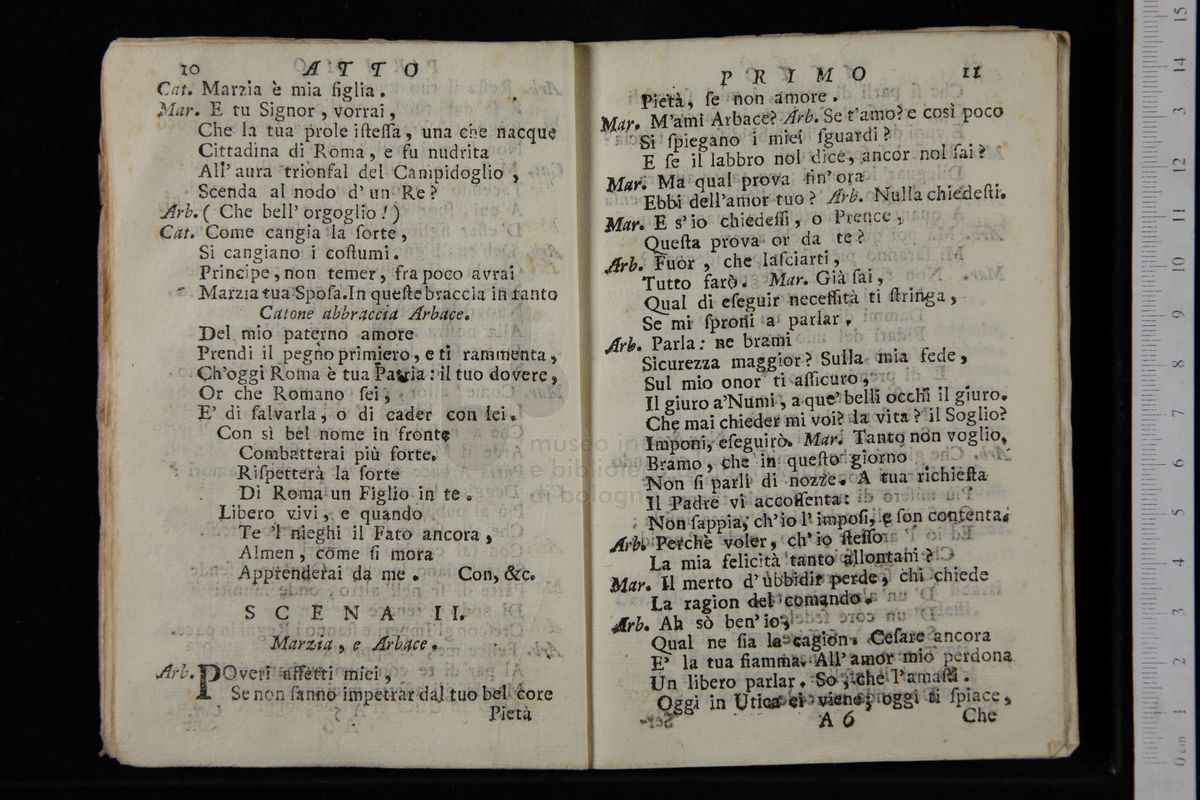 10 ATTO
Cat. Marzia è mia figlia.
Mar. E tu Signor, vorrai,
Che la tua prole iſteſſa, una che nacque
Cittadina di Roma, e fu nudrita
All' aura trionfal del Campidoglio,
Scenda al nodo d' un Re?
Arb. ( Che bell' orgoglio! )
Cat. Come cangia la ſorte,
Si cangiano i coſtumi.
Principe, non temer, fra poco avrai
Marzia tua Spoſa. In queſte braccia in tanto
Catone abbraccia Arbace.
Del mio paterno amore
Prendi il pegno primiero, e ti rammenta,
Ch'oggi Roma è tua Patria: il tuo dovere,
Or che Romano ſei,
E' di ſalvarla, o di cader con lei.
Con sì bel nome in fronte
Combatterai più forte.
Riſpetterà la ſorte
Di Roma un Figlio in te.
Libero vivi, e quando
Te 'l nieghi il Fato ancora,
Almen, come ſi mora
Apprenderai da me. Con, &c.
SCENA II.
Marzia, e Arbace.
Arb. POveri affetti miei,
Se non ſanno impetrar dal tuo bel core
Pietà
PRIMO 11
Pietà, ſe non amore.
Mar. M'ami Arbace? Arb. Se t'amo? e così poco
Si ſpiegano i miei ſguardi?
E ſe il labbro nol dice, ancor nol ſai?
Mar. Ma qual prova fin' ora
Ebbi dell'amor tuo? Arb. Nulla chiedeſti.
Mar. E s'io chiedeſſi, o Prence,
Queſta prova or da te?
Arb. Fuor, che laſciarti,
Tutto farò. Mar. Già ſai,
Qual di eſeguir neceſſità ti ſtringa,
Se mi ſproni a parlar.
Arb. Parla: ne brami
Sicurezza maggior? Sulla mia fede,
Sul mio onor ti aſſicuro,
Il giuro a'Numi, a que' belli occhi il giuro.
Che mai chieder mi voi? la vita? il Soglio?
Imponi, eſeguirò. Mar. Tanto non voglio,
Bramo, che in queſto giorno
Non ſi parli di nozze. A tua richieſta
Il Padre vi acconſenta:
Non ſappia, ch'io l' impoſi, e ſon contenta.
Arb. Perchè voler, ch' io ſteſſo
La mia felicità tanto allontani?
Mar. Il merto d' ubbidir perde, chi chiede
La ragion del comando.
Arb. Ah sò ben' io,
Qual ne ſia la cagion. Ceſare ancora
E' la tua fiamma. All' amor mio perdona
Un libero parlar. So, che l'amaſti.
Oggi in Utica ei viene, oggi ti ſpiace,
A 6 Che